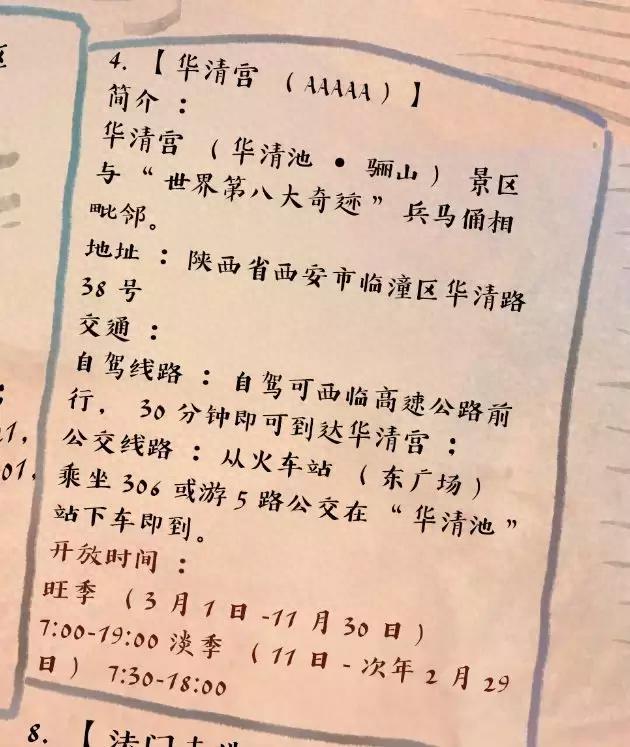 4. 【 华清宫 （AAAAA）】
简介 ：
华清宫 （华清池 • 骊山） 景区
与 “世界第八大奇迹” 兵马俑相
毗邻。
地址 ： 陕西省西安市临潼区华清路
38 号
交通 ：
自驾线路 ： 自驾可西临高速公路前
行， 30 分钟即可到达华清宫 ；
公交线路 ： 从火车站 （东广场）
乘坐 306 或游 5 路公交在 “华清池”
站下车即到。
开放时间 ：
旺季 （3 月 1 日 -11 月 30 日）
7:00-19:00 淡季 （11 日 - 次年 2 月 29
日） 7:30-18:00
8. 【